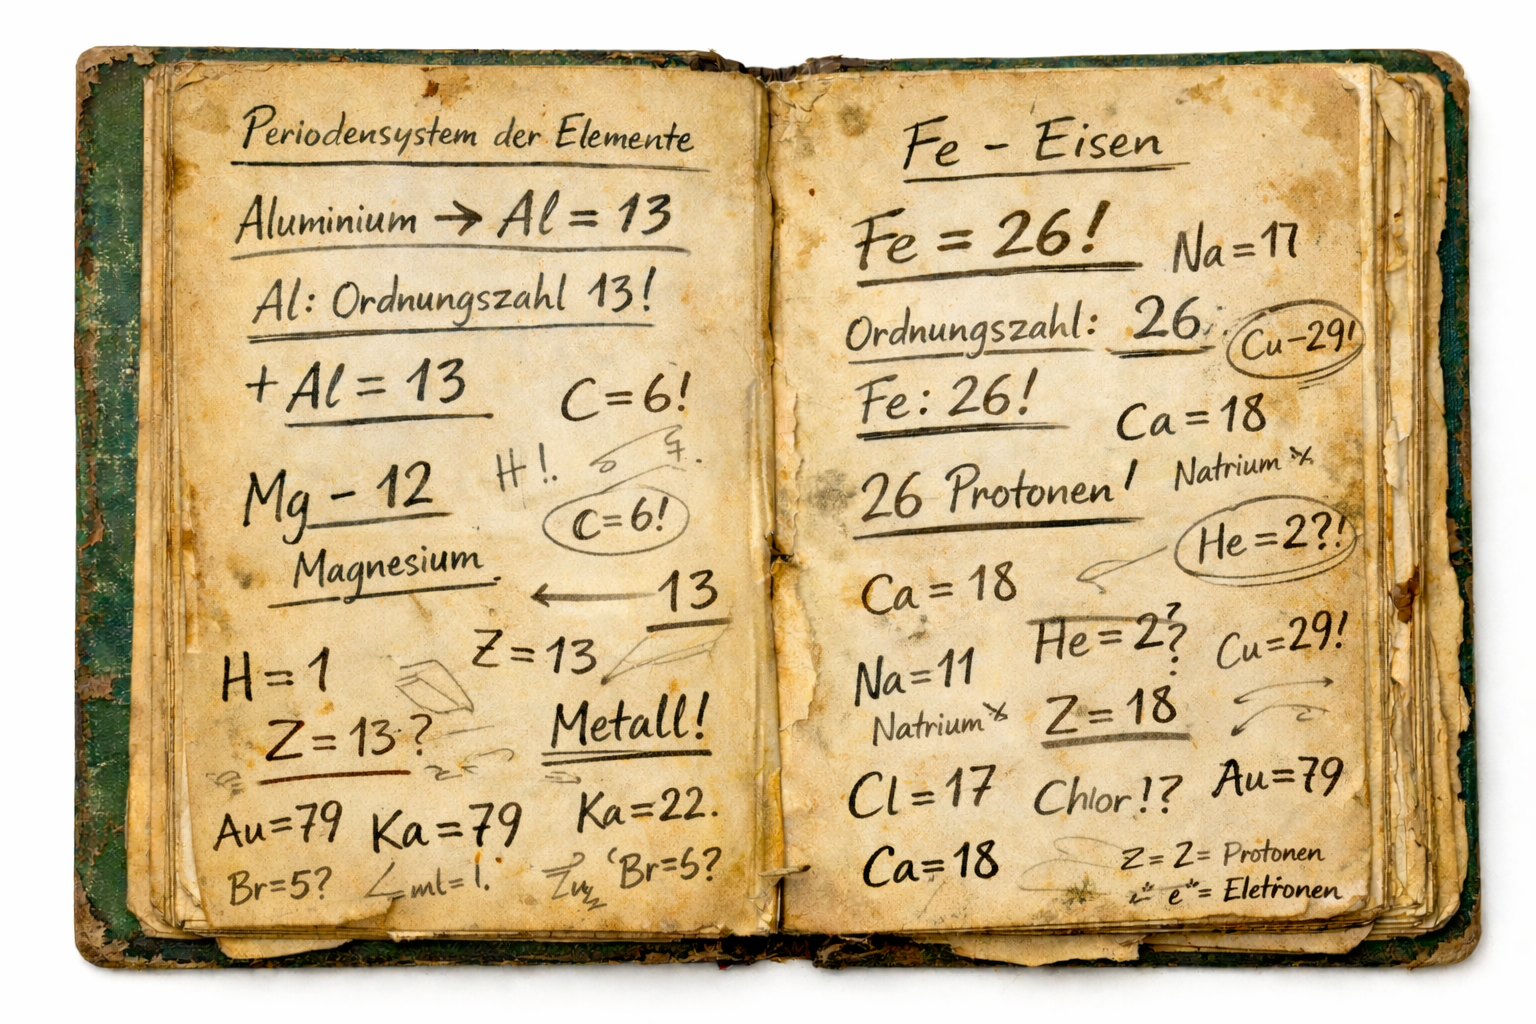 Periodensystem der Elemente
Aluminium → Al = 13
Al: Ordnungszahl 13!
+ Al = 13
C = 6!
Mg - 12
H!.
C=6!
Magnesium.
← 13
Z = 13
H = 1
Z = 13 ?
Metall!
Au=79
Ka=79
Ka=22.
Br=5?
Br=5?
Fe - Eisen
Fe = 26!
Na=17
Ordnungszahl: 26
Cu-29!
Fe: 26!
Ca = 18
26 Protonen!
Natrium
He=2?!
Ca = 18
He = 2?
Cu=29!
Na=11
Natrium
Z = 18
Cl = 17
Chlor!?
Au=79
Ca=18
Z = Z = Protonen
e = Eletironen